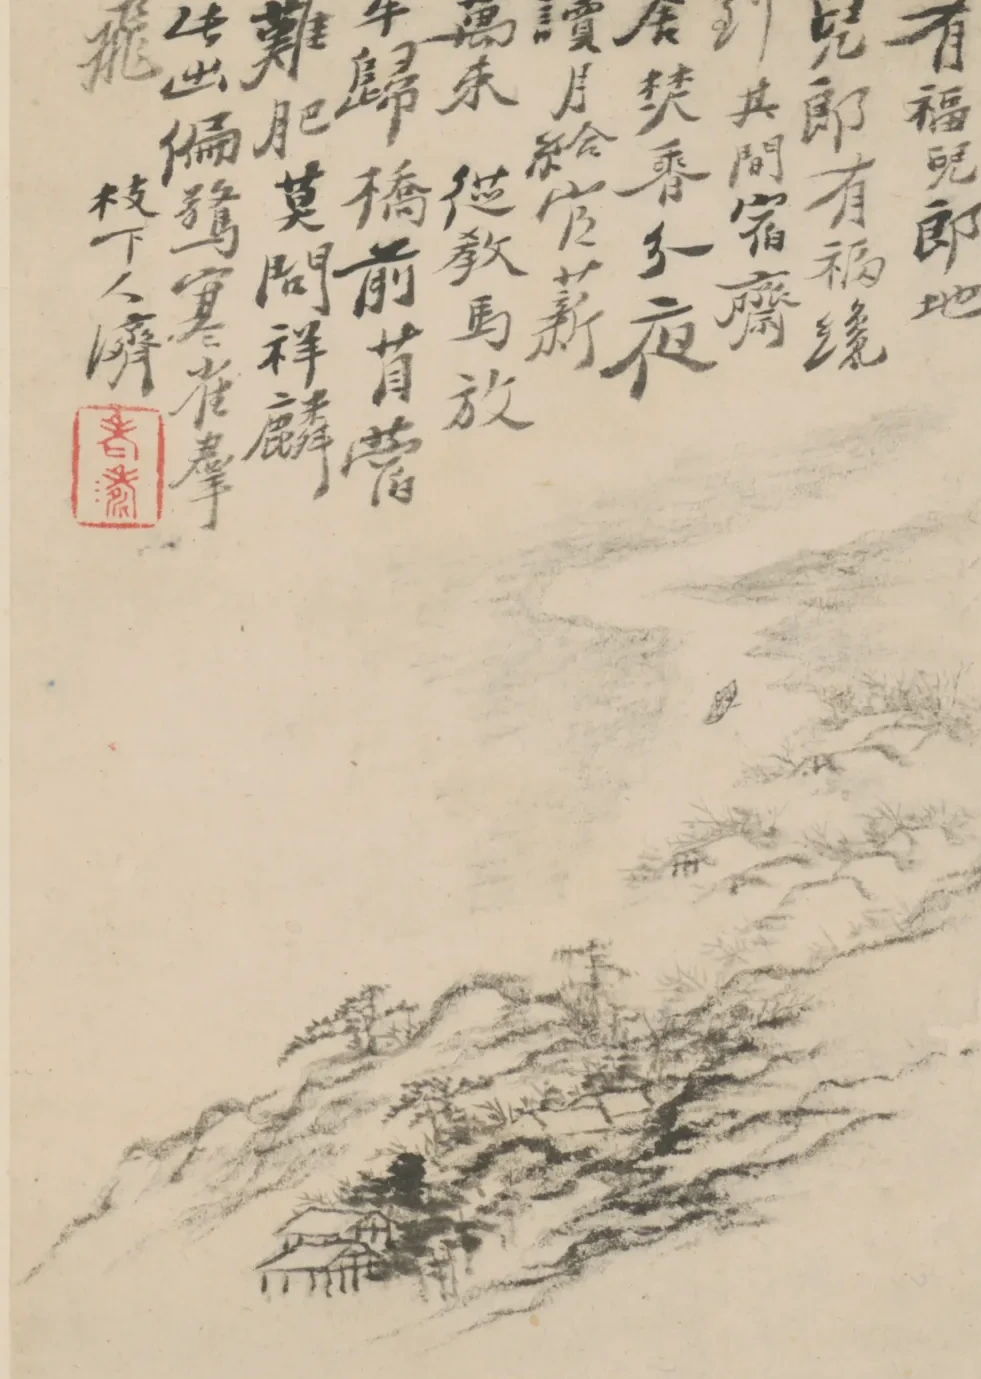 有福兒郎地
兒郎有福纔
到其間宿齋
舍焚香分夜
讀月給官薪
萬未從教馬放
牛歸橋前苜蓿
難肥莫問祥麟
此出偏驚寒雀群
飛
枝下人濟